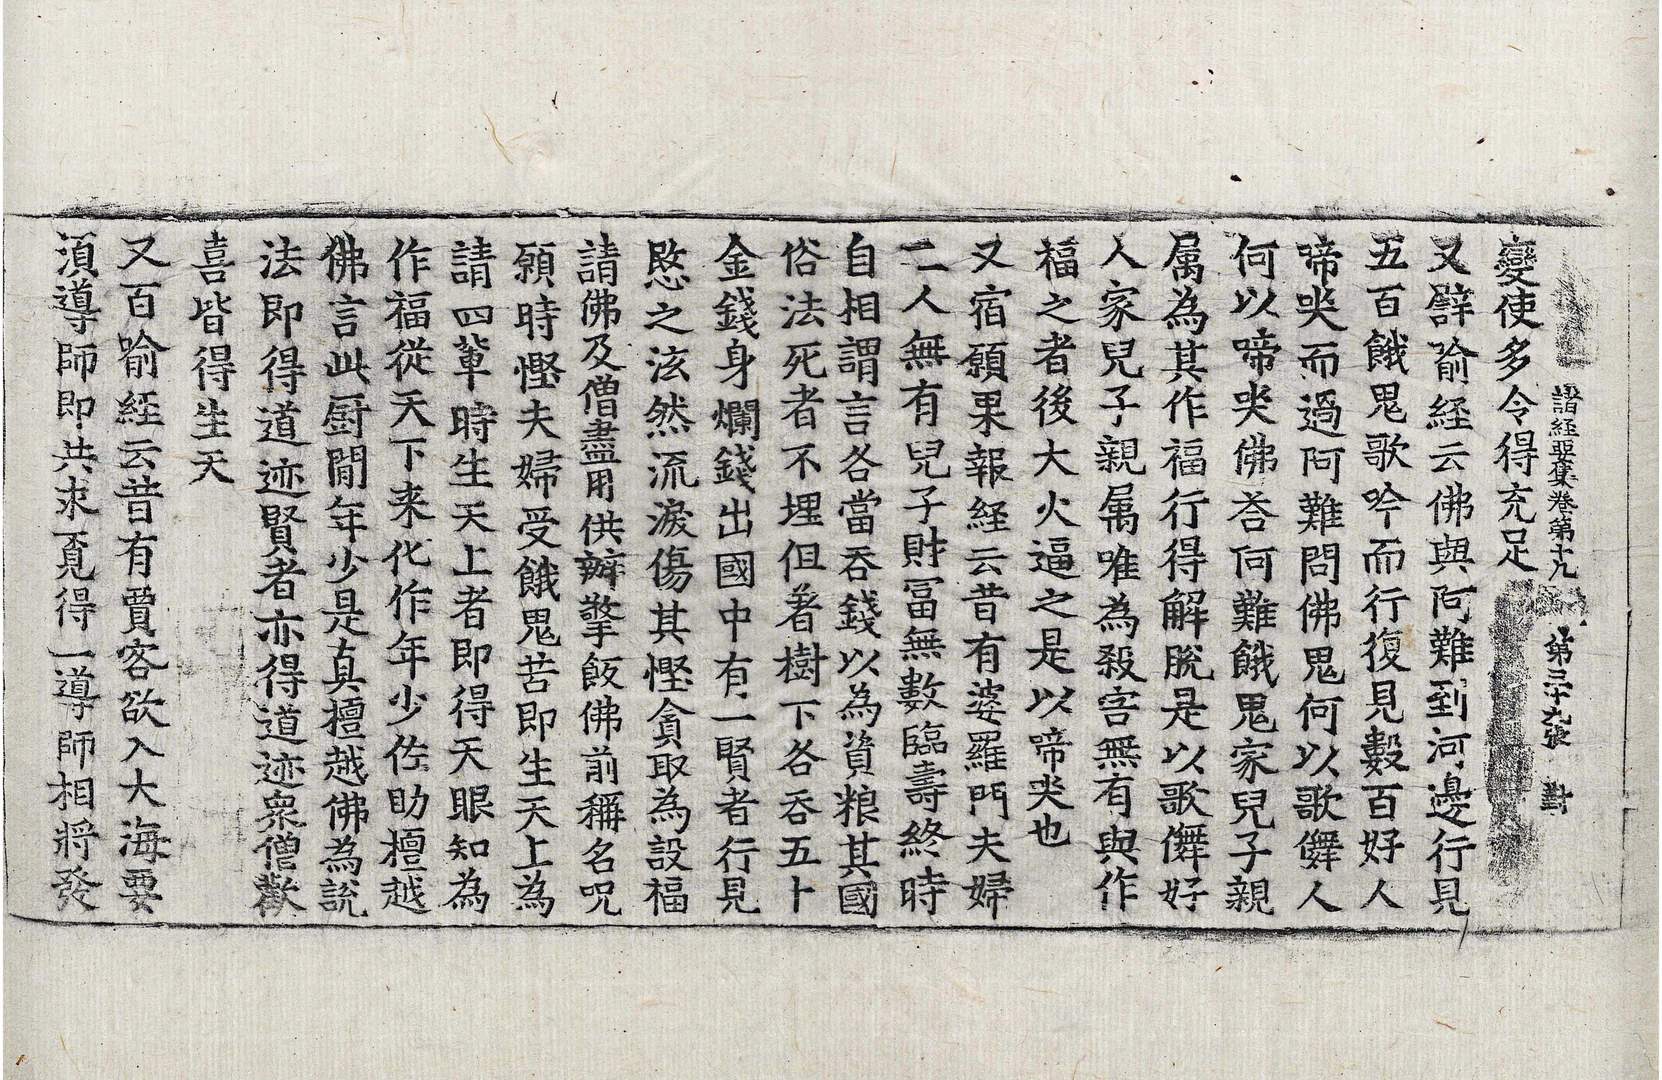 諸經要集卷第十九　第三十九張　對
變使多令得充足
又譬喻經云佛與阿難到河邊行見
五百餓鬼歌吟而行復見數百好人
啼哭而過阿難問佛鬼何以歌儛人
何以啼哭佛荅阿難餓鬼家兒子親
属為其作福行得解脫是以歌儛好
人家兒子親属唯為殺害無有與作
福之者後大火逼之是以啼哭也
又宿願果報経云昔有婆羅門夫婦
二人無有兒子財冨無數臨壽終時
自相謂言各當吞錢以為資粮其國
俗法死者不埋但著樹下各吞五十
金錢身爛錢出國中有一賢者行見
愍之泫然流淚傷其慳貪取為設福
請佛及僧盡用供辦擎飯佛前稱名呪
願時慳夫婦受餓鬼苦即生天上為
請四軰時生天上者即得天眼知為
作福從天下来化作年少佐助檀越
佛言此厨閒年少是真檀越佛為說
法即得道迹賢者亦得道迹衆僧歡
喜皆得生天
又百喻経云昔有賈客欲入大海要
湏導師即共求覓得一導師相將發